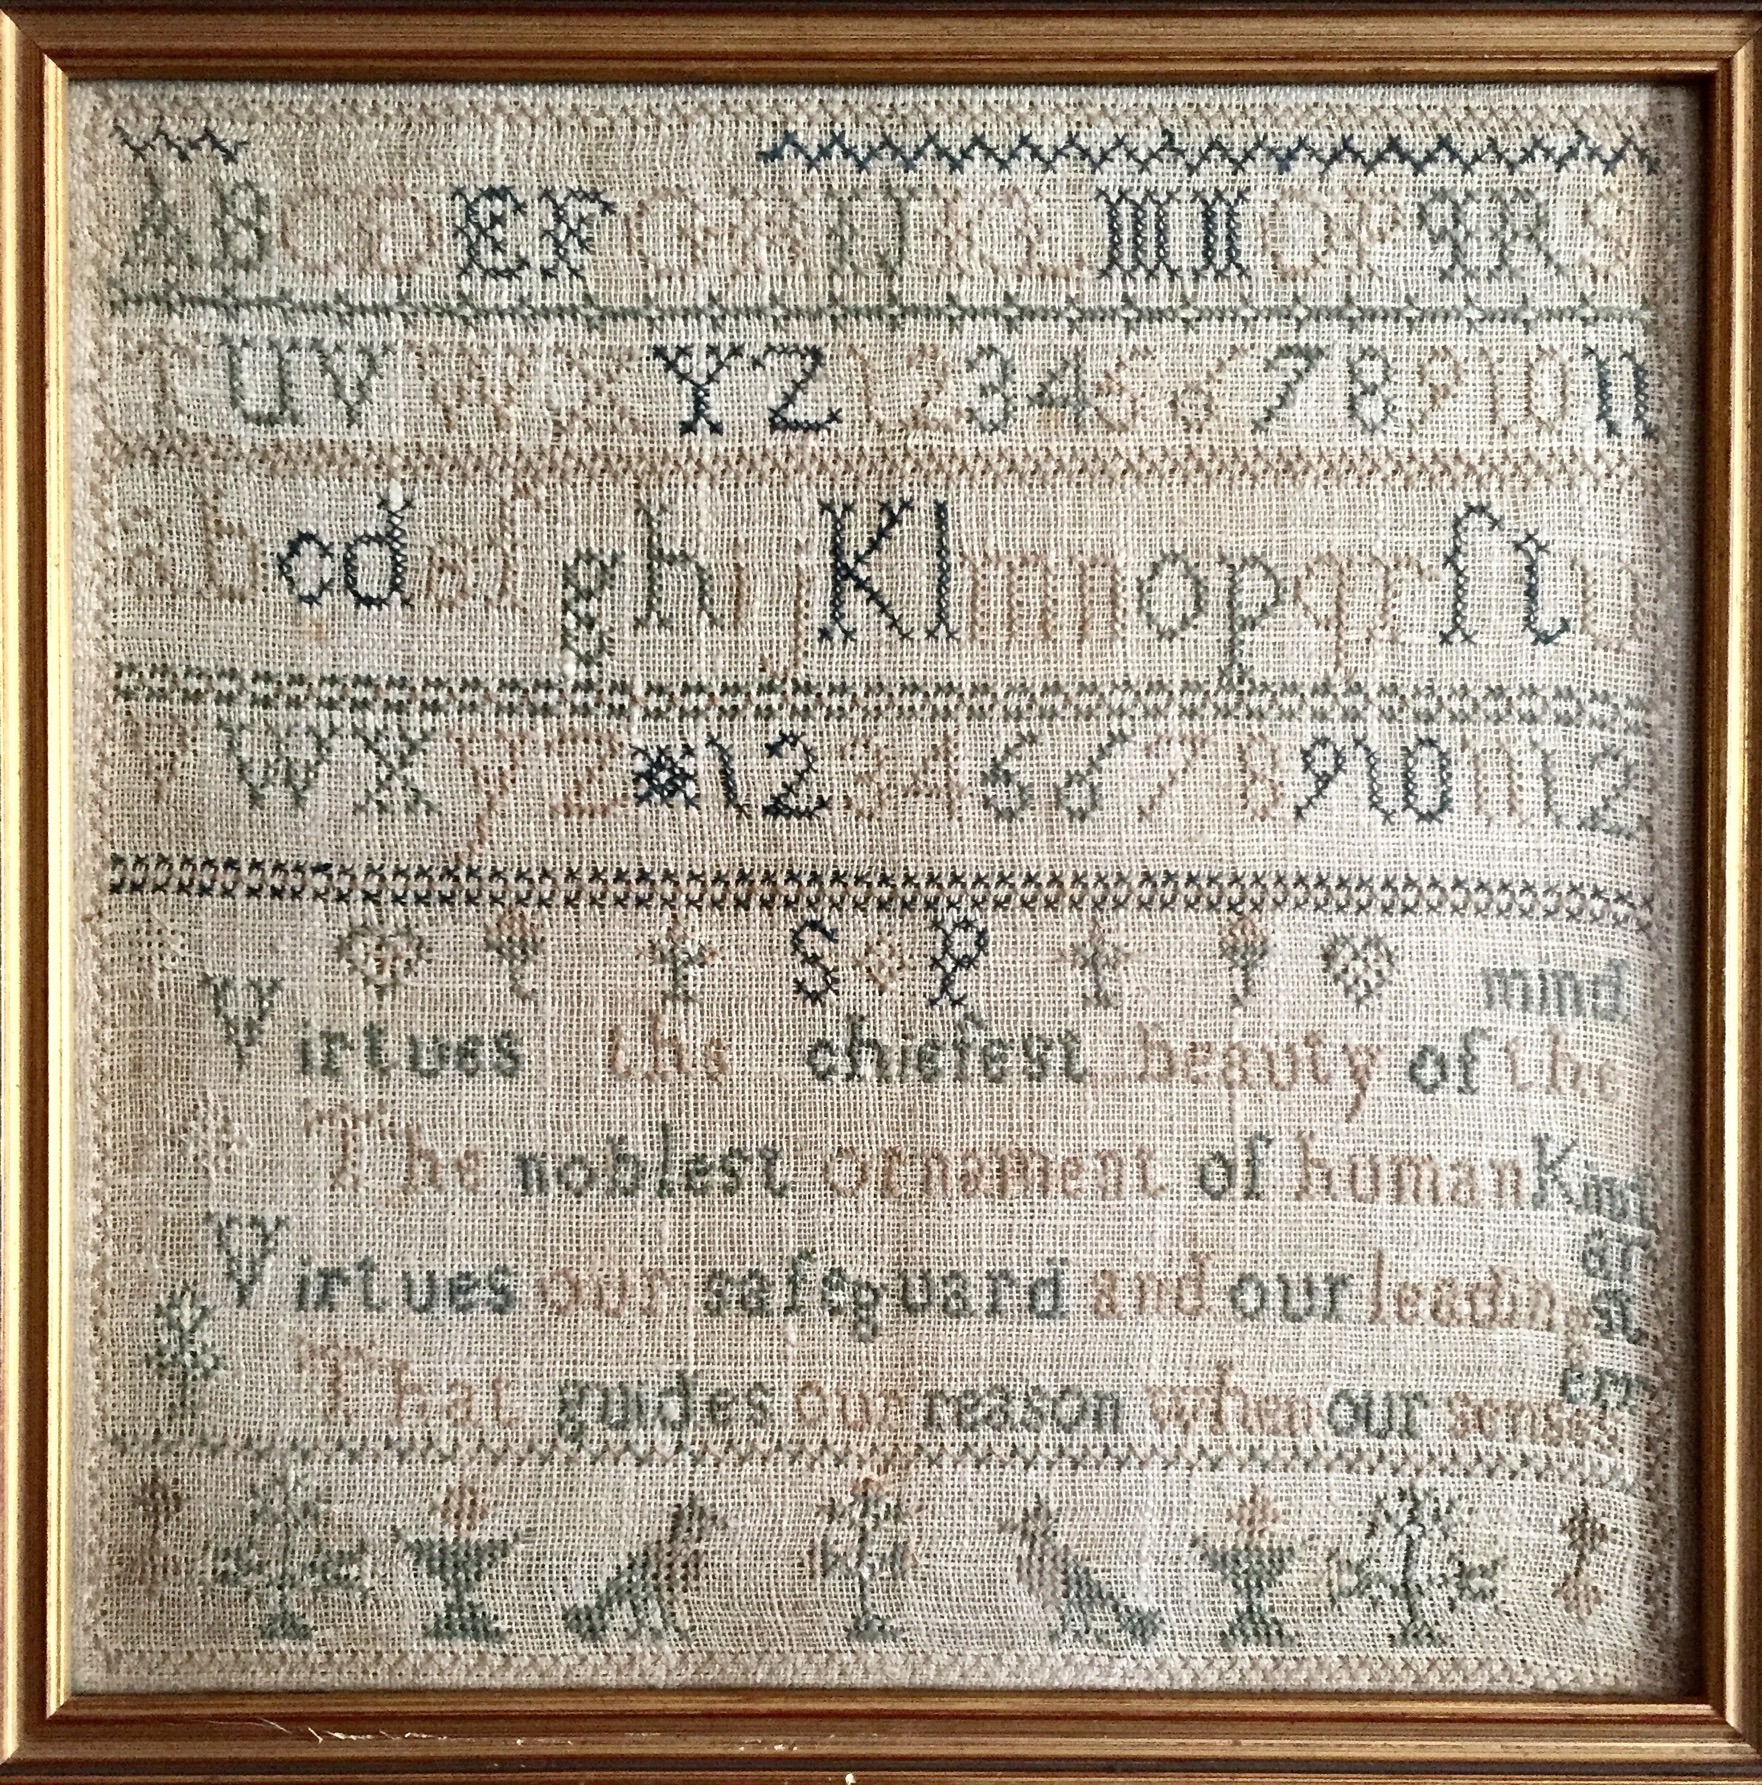 A B C D E F G H I J K L M N O P Q R S
T U V W X Y Z 1 2 3 4 5 6 7 8 9 10 11
a b c d e f g h i j K l m n o p q r ſ t u
v W X y z * 1 2 3 4 5 6 7 8 9 10 11 12
S P
mind
Virtues the chiefest beauty of the
The noblest ornament of human Kind
Virtues our safeguard and our leading
star
That guides our reason when our senses
err